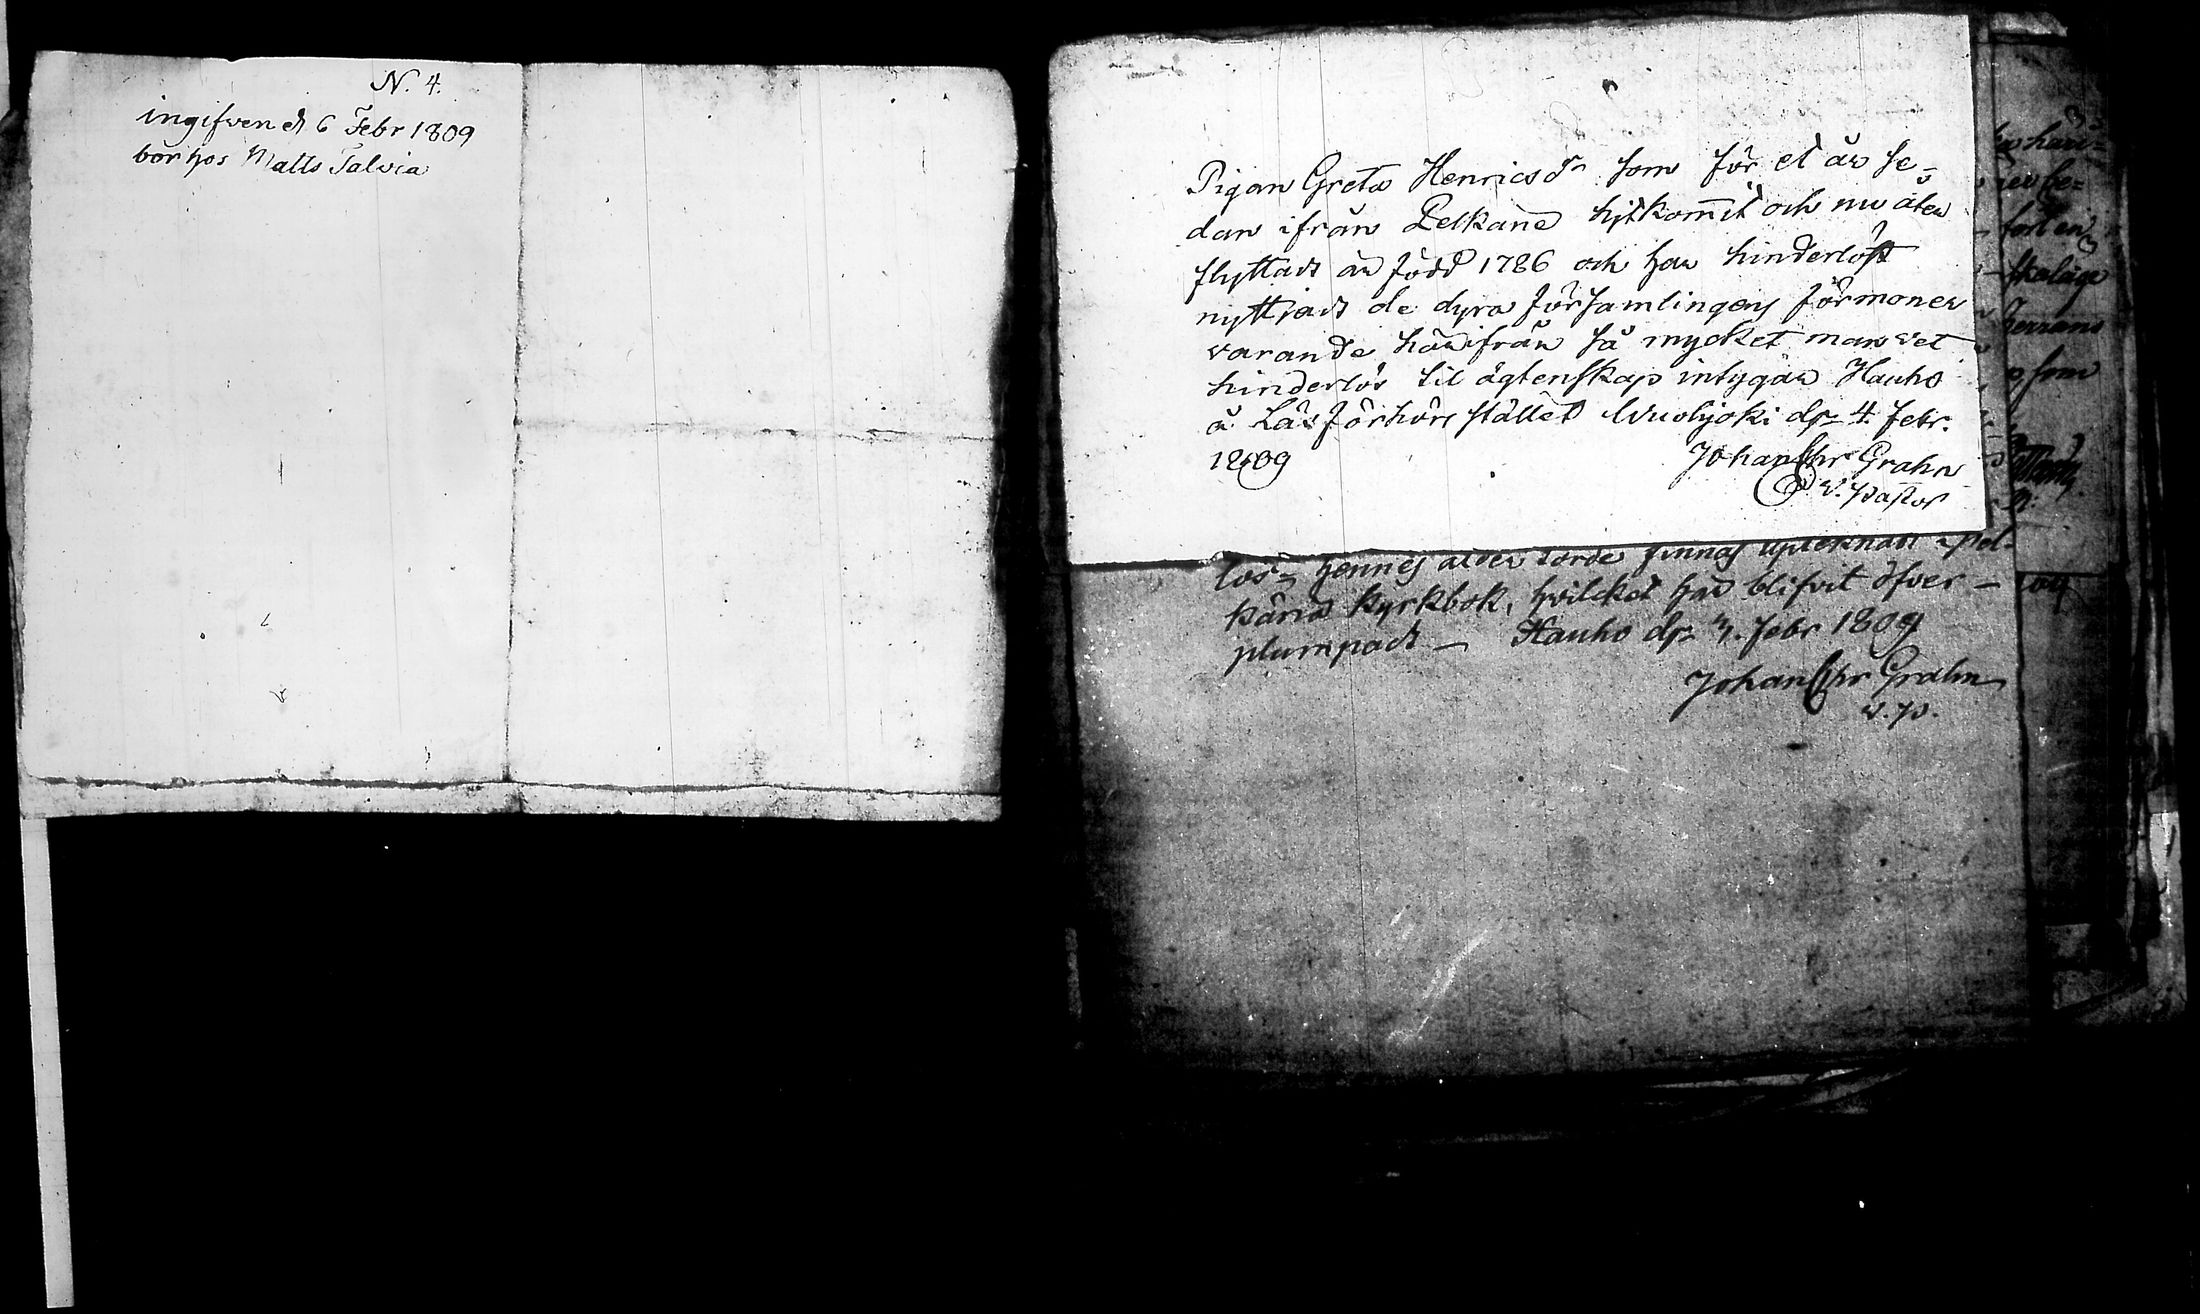 N. 4.
ingifven d 6 Febr 1809
bor hos Matts Talvia
Pigan Greta Henricsdr som för et år se-
dan ifrån Pelkäne hitkommit och nu åter
flyttadt är född 1786 och har hinderlöst
nyttjadt de dyra församlingens förmoner
varande härifrån så mycket man vet
hinderlös til ägtenskap intygar Hauho
å Läsförhörs stället Wuolijoki dn 4 Febr.
1809
Johan Chr Grahn
v. Pastor
lös hennes ålder torde finnas uptecknad i Pel-
käne Kyrkbok, hvilcket här blifvit öfver-
plumpadt – Hauho dn Febr 1809
Johan Chr Grahn
v. p.
som